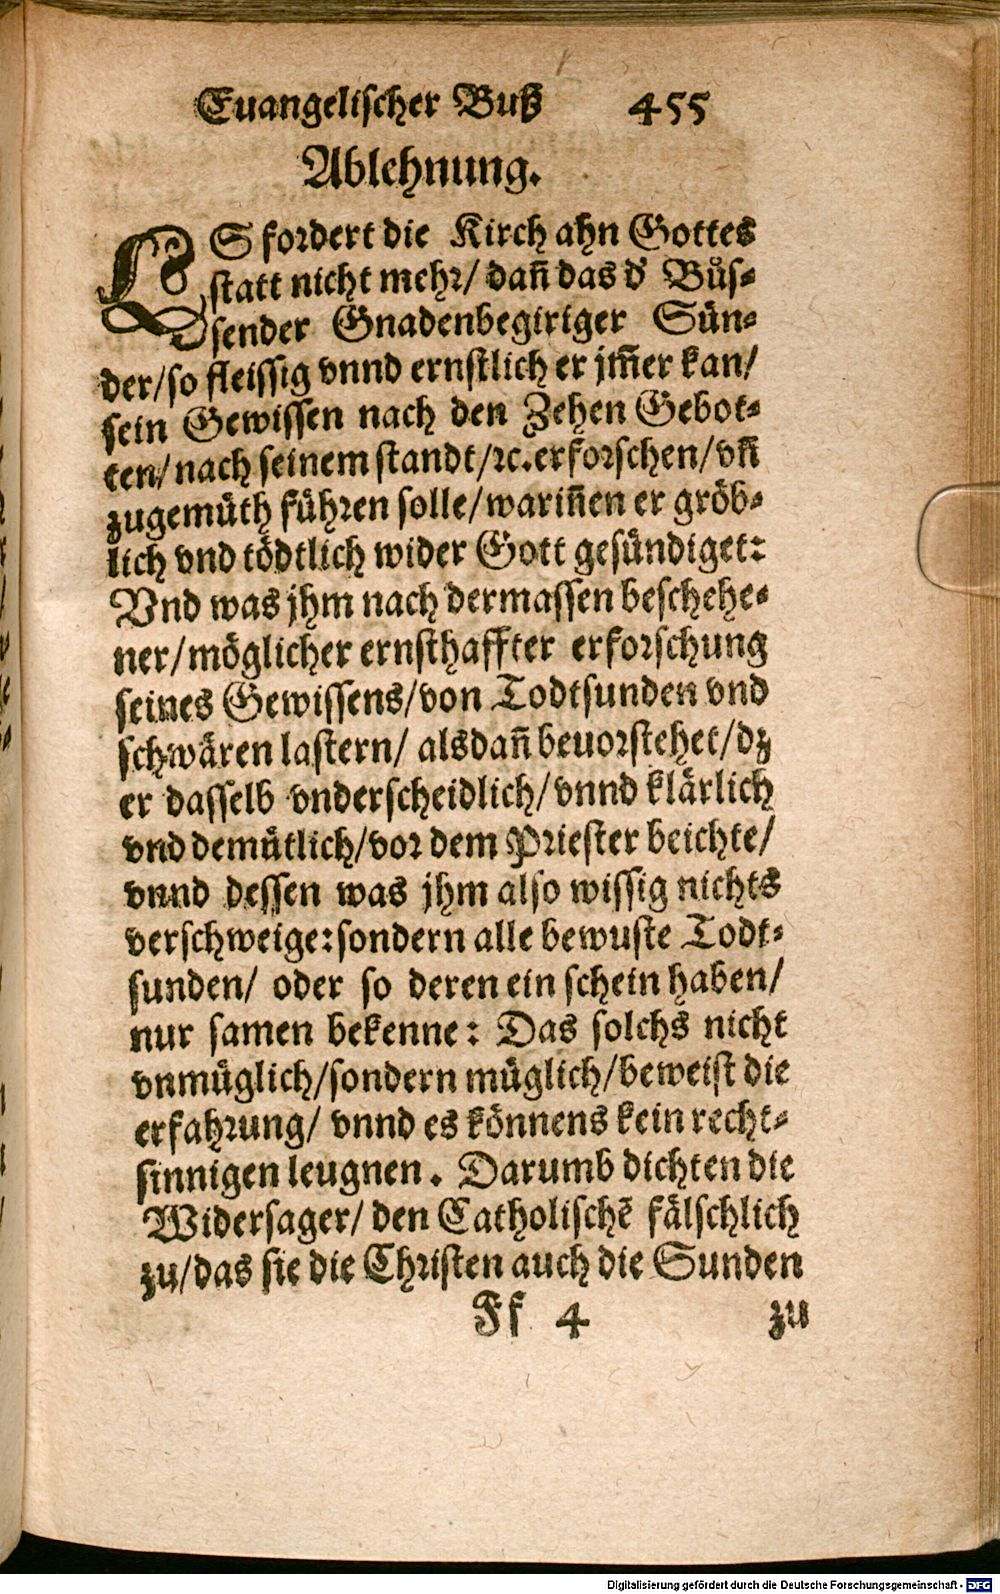 Euangelischer Buß 455
Ablehnung.
ES fordert die Kirch ahn Gottes
statt nicht mehr/ dañ das d' Buͤs-
sender Gnadenbegiriger Sün-
der/so fleissig vnnd ernstlich er jm̃er kan/
sein Gewissen nach den Zehen Gebot-
ten/nach seinem standt/ꝛc.erforschen/vñ
zugemüth führen solle/wariñen er gröb-
lich vnd tödtlich wider Gott gesündiget:
Vnd was jhm nach dermassen beschehe-
ner/möglicher ernsthaffter erforschung
seines Gewissens/von Todtsunden vnd
schwären lastern/ alsdañ beuorstehet/dz
er dasselb vnderscheidlich/vnnd klärlich
vnd demütlich/vor dem Priester beichte/
vnnd dessen was jhm also wissig nichts
verschweige:sondern alle bewuste Todt-
sunden/ oder so deren ein schein haben/
nur samen bekenne: Das solchs nicht
vnmüglich/sondern müglich/beweist die
erfahrung/ vnnd es könnens kein recht-
sinnigen leugnen. Darumb dichten die
Widersager/ den Catholischẽ fälschlich
zu/das sie die Christen auch die Sunden
Ff 4 zu
Digitalisierung gefördert durch die Deutsche Forschungsgemeinschaft - DFG